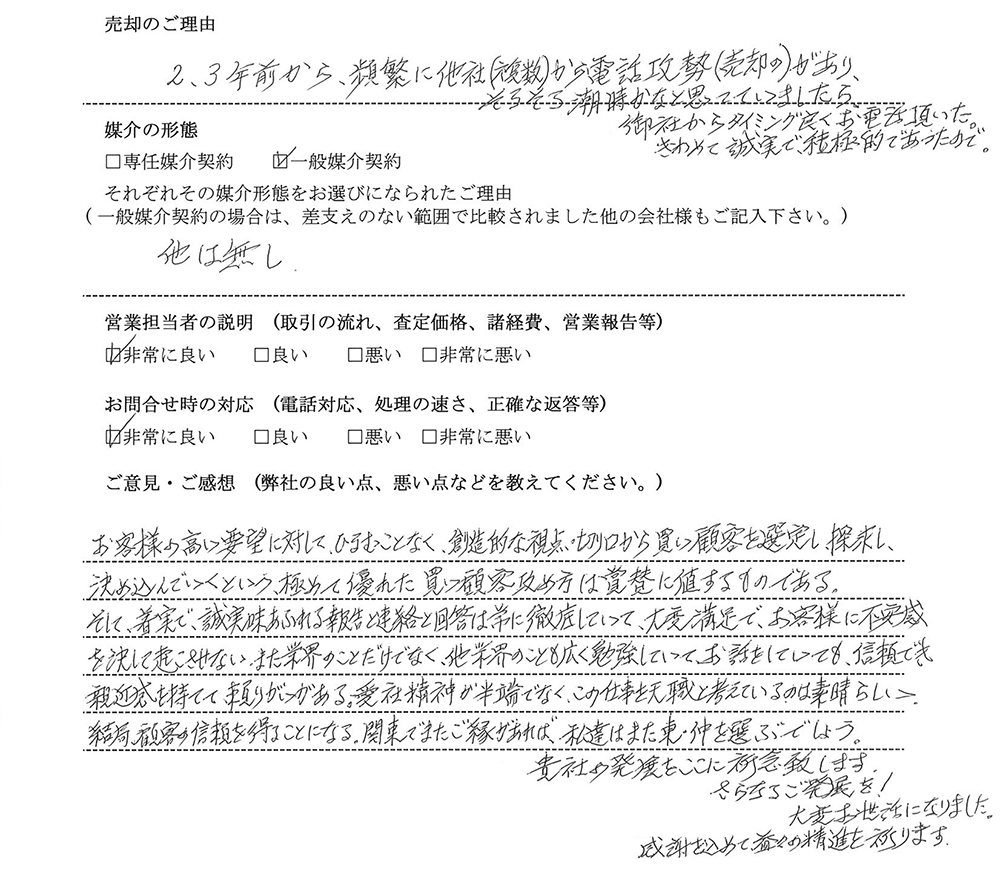 売却のご理由
2、3年前から、頻繁に他社(複数)から電話攻勢(売却の)があり、
そろそろ潮時かなと思っていましたら、
御社からタイミング良くお電話頂いた。
きわめて誠実で、積極的であったので。
媒介の形態
□専任媒介契約 ☑一般媒介契約
それぞれその媒介形態をお選びになられたご理由
(一般媒介契約の場合は、差支えのない範囲で比較されました他の会社様もご記入下さい。)
他は無し.
営業担当者の説明 (取引の流れ、査定価格、諸経費、営業報告等)
☑非常に良い □良い □悪い □非常に悪い
お問合せ時の対応 (電話対応、処理の速さ、正確な返答等)
☑非常に良い □良い □悪い □非常に悪い
ご意見・ご感想 (弊社の良い点、悪い点などを教えてください。)
お客様の高い要望に対して、ひるむことなく、創造的な視点・切り口から買い顧客を選定し、探求し、
決め込んでいくという、極めて優れた買い顧客攻め方は賞賛に値するものである。
そして、着実で、誠実味あふれる報告と連絡と回答は常に徹底していて、大変満足で、お客様に不安感
を決して起こさせない。また業界のことだけでなく、他業界のことも広く勉強していて、お話をしていても、信頼でき
親近感を持てて頼りがいがある。愛社精神が半端でなく、この仕事を天職と考えているのは素晴らしい
結局、顧客の信頼を得ることになる。関東でまたご縁があれば、私達はまた東・仲を選ぶでしょう。
貴社の発展をここに祈念致します.
さらなるご発展を!
大変お世話になりました。
感謝を込めて益々の精進を祈ります.